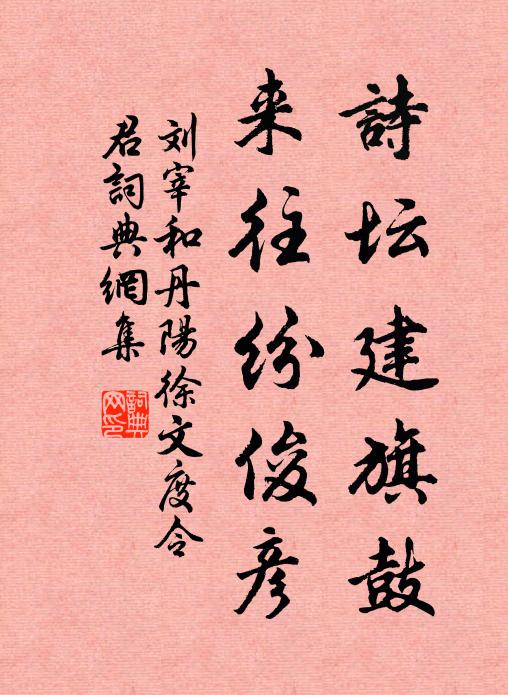 詩坛建旗鼓
来往纷俊彦
刘宰和丹陽徐文度令
君詞典網集
詞典
网印